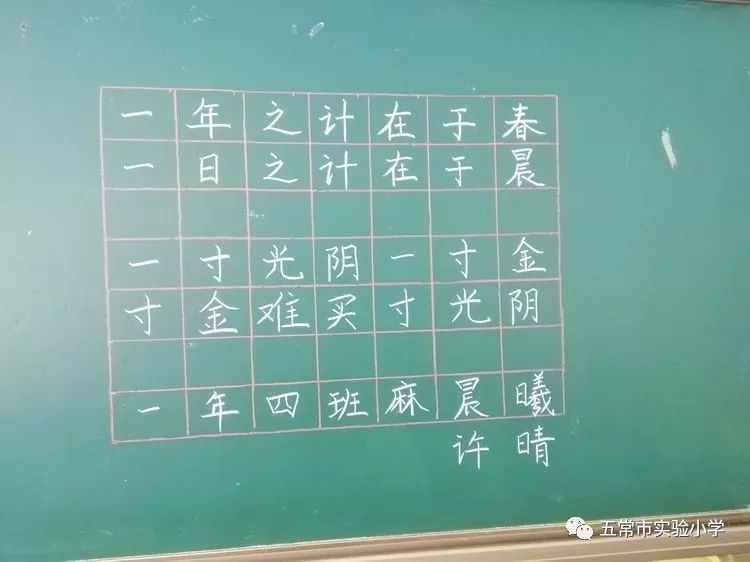 一年之计在于春
一日之计在于晨
一寸光阴一寸金
寸金难买寸光阴
一年四班麻晨曦
许晴
五常市实验小学